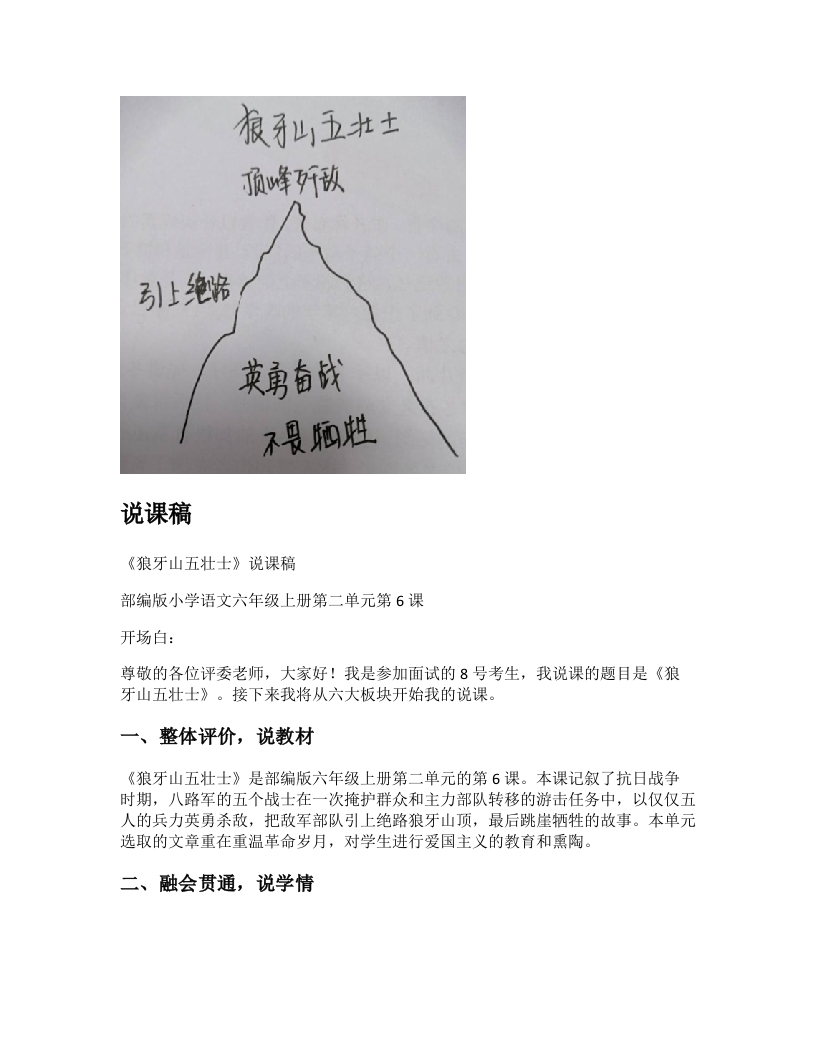 狼牙山五壮士
顶峰歼敌
引上绝路
英勇奋战
不畏牺牲
说课稿
《狼牙山五壮士》说课稿
部编版小学语文六年级上册第二单元第 6 课
开场白：
尊敬的各位评委老师，大家好！我是参加面试的 8 号考生，我说课的题目是《狼
牙山五壮士》。接下来我将从六大板块开始我的说课。
一、整体评价，说教材
《狼牙山五壮士》是部编版六年级上册第二单元的第 6 课。本课记叙了抗日战争
时期，八路军的五个战士在一次掩护群众和主力部队转移的游击任务中，以仅仅五
人的兵力英勇杀敌，把敌军部队引上绝路狼牙山顶，最后跳崖牺牲的故事。本单元
选取的文章重在重温革命岁月，对学生进行爱国主义的教育和熏陶。
二、融会贯通，说学情